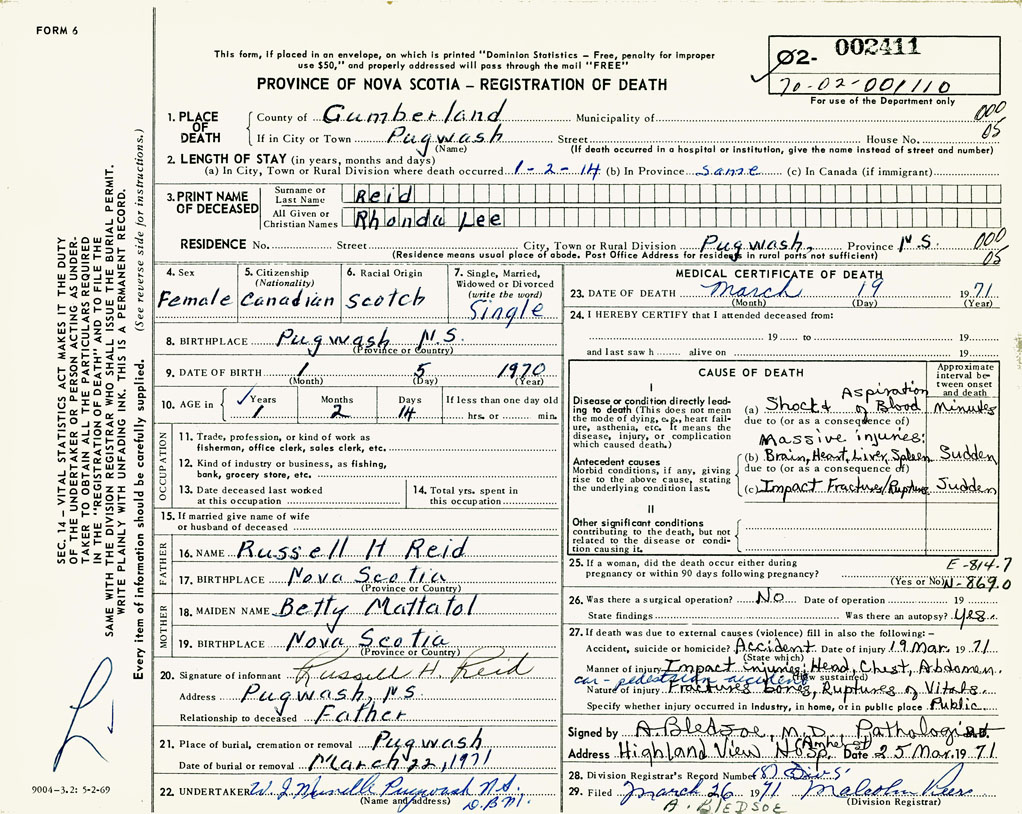 FORM 6
This form, if placed in an envelope, on which is printed "Dominion Statistics – Free, penalty for improper
use $50," and properly addressed will pass through the mail "FREE"
PROVINCE OF NOVA SCOTIA – REGISTRATION OF DEATH
Ø2- 002411
70-02-001110
For use of the Department only
1. PLACE OF DEATH
County of Cumberland Municipality of 000
If in City or Town Pugwash Street House No. 05
(Name) (If death occurred in a hospital or institution, give the name instead of street and number)
2. LENGTH OF STAY (in years, months and days)
(a) In City, Town or Rural Division where death occurred 1-2-14 (b) In Province same (c) In Canada (if immigrant)
3. PRINT NAME OF DECEASED
Surname or Last Name Reid
All Given or Christian Names Rhonda Lee
RESIDENCE No. Street City, Town or Rural Division Pugwash, Province N.S. 000
(Residence means usual place of abode. Post Office Address for residents in rural parts not sufficient) 05
4. Sex Female
5. Citizenship (Nationality) Canadian
6. Racial Origin Scotch
7. Single, Married, Widowed or Divorced (write the word) Single
8. BIRTHPLACE Pugwash N.S.
(Province or Country)
9. DATE OF BIRTH 1 5 1970
(Month) (Day) (Year)
10. AGE in ✓ Years 1 Months 2 Days 14 If less than one day old hrs. or min.
OCCUPATION
11. Trade, profession, or kind of work as
fisherman, office clerk, sales clerk, etc.
12. Kind of industry or business, as fishing,
bank, grocery store, etc.
13. Date deceased last worked at this occupation
14. Total yrs. spent in this occupation
15. If married give name of wife
or husband of deceased
FATHER
16. NAME Russell H Reid
17. BIRTHPLACE Nova Scotia
(Province or Country)
MOTHER
18. MAIDEN NAME Betty Mattatol
19. BIRTHPLACE Nova Scotia
(Province or Country)
20. Signature of informant Russell H. Reid
Address Pugwash, N.S.
Relationship to deceased Father
21. Place of burial, cremation or removal Pugwash
Date of burial or removal March 22, 1971
22. UNDERTAKER Pugwash N.S.
(Name and address)
MEDICAL CERTIFICATE OF DEATH
23. DATE OF DEATH March 19 1971
(Month) (Day) (Year)
24. I HEREBY CERTIFY that I attended deceased from:
19 to 19
and last saw h alive on 19
CAUSE OF DEATH
Approximate interval between onset and death
I
Disease or condition directly leading to death (This does not mean the mode of dying, e.g., heart failure, asthenia, etc. It means the disease, injury, or complication which caused death.)
(a) Shock & Aspiration of Blood minutes
due to (or as a consequence of)
Massive injuries:
Antecedent causes
Morbid conditions, if any, giving rise to the above cause, stating the underlying condition last.
(b) Brain, Heart, Liver, Spleen Sudden
due to (or as a consequence of)
(c) Impact Fractures/Rupture Sudden
II
Other significant conditions
contributing to the death, but not related to the disease or condition causing it.
25. If a woman, did the death occur either during
pregnancy or within 90 days following pregnancy?
(Yes or No)
E-814.7
N-869.0
26. Was there a surgical operation? No Date of operation 19
State findings Was there an autopsy? Yes
27. If death was due to external causes (violence) fill in also the following:–
Accident, suicide or homicide? Accident Date of injury 19 Mar. 1971
(State which)
Manner of injury Impact injuries, Head, Chest, Abdomen.
car-pedestrian accident (How sustained)
Nature of injury Fractures bones, Ruptures of Vitals.
Specify whether injury occurred in Industry, in home, or in public place Public
Signed by A. Bledsoe, M.D., Pathologist
Address Highland View Hosp. (Amherst) Date 25 Mar. 1971
28. Division Registrar's Record Number
29. Filed March 26 1971 Malcolm
A. BLEDSOE (Division Registrar)
SEC. 14 – VITAL STATISTICS ACT MAKES IT THE DUTY
OF THE UNDERTAKER OR PERSON ACTING AS UNDER-
TAKER TO OBTAIN ALL THE PARTICULARS REQUIRED
IN THE "REGISTRATION OF DEATH" AND TO FILE THE
SAME WITH THE DIVISION REGISTRAR WHO SHALL ISSUE THE BURIAL PERMIT.
WRITE PLAINLY WITH UNFADING INK. THIS IS A PERMANENT RECORD.
Every item of information should be carefully supplied. (See reverse side for instructions.)
9004-3.2: 5-2-69